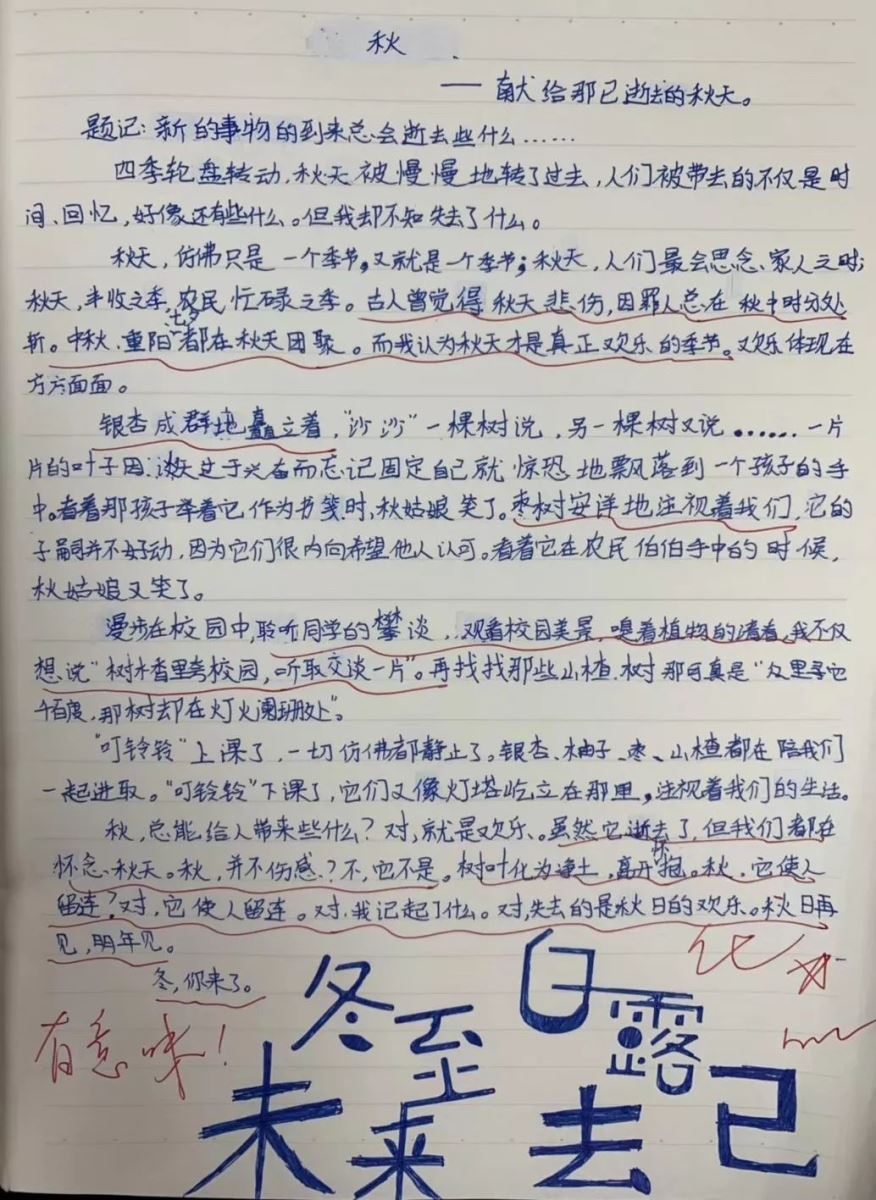 秋
——献给那已逝去的秋天。
题记：新的事物的到来总会逝去些什么……
四季轮盘转动，秋天被慢慢地转了过去，人们被带去的不仅是时
间、回忆，好像还有些什么。但我却不知失去了什么。
秋天，仿佛只是一个季节，又就是一个季节；秋天，人们最会思念、家人之时；
秋天，丰收之季，农民忙碌之季。古人曾觉得秋天悲伤，因罪人总在秋中时分处
斩。中秋、重阳、七夕都在秋天团聚。而我认为秋天才是真正欢乐的季节。欢乐体现在
方方面面。
银杏成群地矗立着，“沙沙”一棵树说，另一棵树又说……一片
片的叶子因谈天过于兴奋而忘记固定自己就惊恐地飘落到一个孩子的手
中。看着那孩子举着它作为书笺时，秋姑娘笑了。枣树安详地注视着我们，它的
子嗣并不好动，因为它们很内向希望他人认可。看着它在农民伯伯手中的时候，
秋姑娘又笑了。
漫步在校园中，聆听同学的攀谈，观看校园美景，嗅着植物的清香，我不仅
想说“树木香里夸校园，听取交谈一片”。再找找那些山楂树那可真是“众里寻它
千百度，那树却在灯火阑珊处”。
“叮铃铃”上课了，一切仿佛都静止了。银杏、柚子、枣、山楂都在陪我们
一起进取。“叮铃铃”下课了，它们又像灯塔屹立在那里，注视着我们的生活。
秋，总能给人带来些什么？对，就是欢乐、。虽然它逝去了，但我们都在
怀念秋天。秋，并不伤感？不，它不是。树叶化为尘土，离开怀抱。秋，它使人
留连？对，它使人留连。对，我记起了什么。对，失去的是秋日的欢乐。秋日再
见，明年见。
冬，你来了。
有意味！
冬至
白露
未来
去已